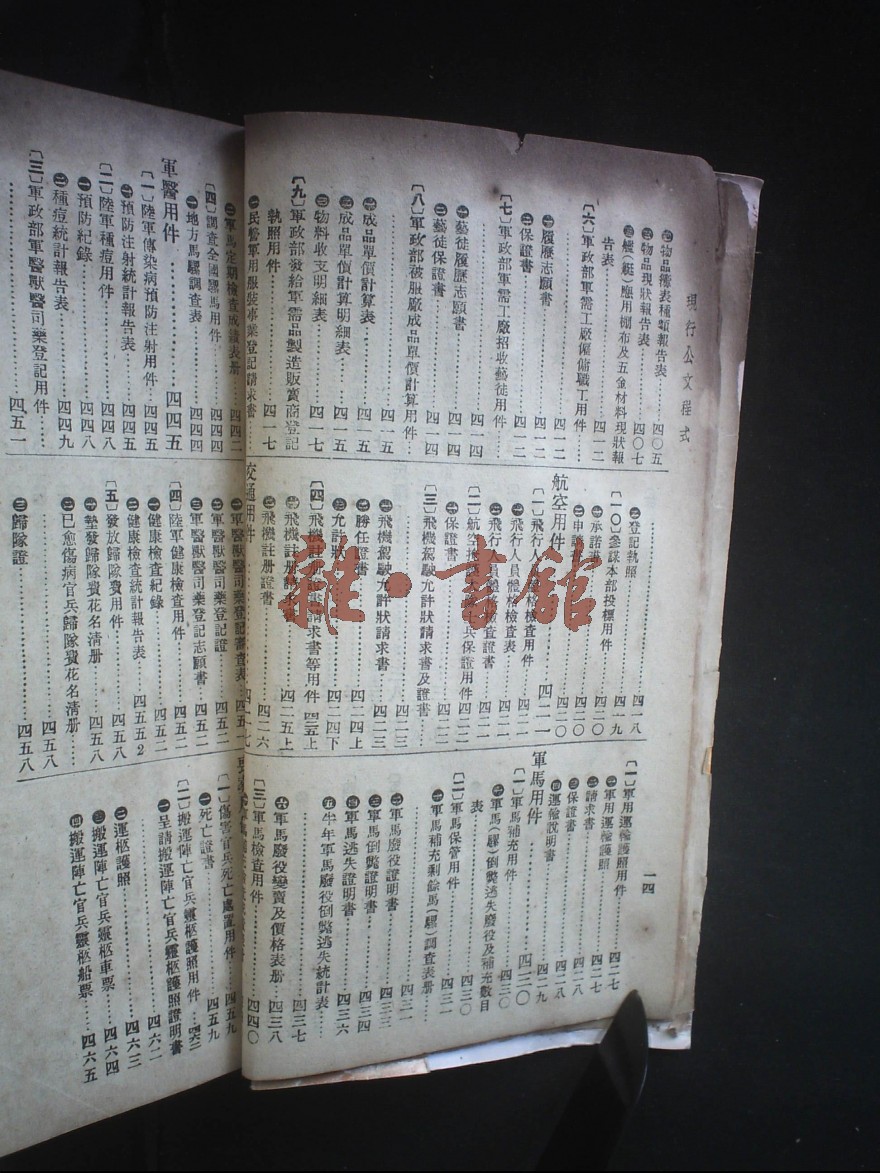 現行公文程式
一四
物品總表種類報告表……四〇五
物品現狀報告表……四〇七
艦(艇)應用棚布及五金材料現狀報
告表……四一二
〔六〕軍政部軍需工廠僱傭職工用件……四一二
履歷志願書……四一二
保證書……四一二
〔七〕軍政部軍需工廠招收藝徒用件……四一四
藝徒履歷志願書……四一四
藝徒保證書……四一四
〔八〕軍政部被服廠成品單價計算用件
……四一五
成品單價計算表……四一五
成品單價計算明細表……四一五
物料收支明細表……四一七
〔九〕軍政部發給軍需品製造販賣商登記
執照用件……四一七
民營軍用服裝事業登記請求書……四一七
登記執照……四一八
〔一〇〕參謀本部投標用件……四一九
承諾書……四二〇
申請書……四二〇
航空用件……四二一
〔一〕飛行人員體格檢查用件……四二一
飛行人員體格檢查表……四二一
飛行人員體格檢查證書……四二一
〔二〕航空士兵保證用件……四二二
保證書……四二二
〔三〕飛機駕駛允許狀請求書及證書
……四二三
飛機駕駛允許狀請求書……四二三
勝任證書……四二四上
允許狀……四二四下
〔四〕飛機註册證書請求書等用件……四二五上
飛機註册請求書……四二五上
飛機註册證書……四二六
交通用件……四二七
〔一〕軍用運輸護照用件……四二七
軍用運輸護照……四二七
請求書……四二七
保證書……四二八
運輸說明書……四二九
軍馬用件……四三〇
〔一〕軍馬補充用件……四三〇
軍馬(騾)倒斃逃失廢役及補充數目
表……四三〇
〔二〕軍馬保管用件……四三〇
軍馬補充剩餘馬(騾)調查表册……
四三一
軍馬廢役證明書……四三二
軍馬倒斃證明書……四三四
軍馬逃失證明書……四三六
半年軍馬廢役倒斃逃失統計表……
四三七
軍馬廢役變賣及價格表册……四三八
〔三〕軍馬檢查用件……四四〇
軍馬定期檢查成績表册……四四二
〔四〕調查全國騾馬用件……四四四
地方馬騾調查表……四四四
軍醫用件……四四五
〔一〕陸軍傳染病預防注射用件……四四五
預防注射統計報告表……四四五
〔二〕陸軍種痘用件……四四八
預防紀錄……四四八
種痘統計報告表……四四九
〔三〕軍政部軍醫獸醫司藥登記用件
……四五一
軍醫獸醫司藥登記審查表……四五一
軍醫獸醫司藥登記證……四五二
軍醫獸醫司藥登記志願書……四五二
〔四〕陸軍健康檢查用件……四五二
健康檢查紀錄……四五二
健康檢查統計報告表……四五五2
〔五〕發放歸隊費用件……四五八
墊發歸隊費花名清册……四五八
已愈傷病官兵歸隊費花名清册……
四五八
歸隊證……四五八
〔一〕傷害官兵死亡處置用件……四五九
死亡證書……四五九
〔二〕搬運陣亡官兵靈柩護照用件……四六二
呈請搬運陣亡官兵靈柩護照證明書
……四六二
運柩護照……四六三
搬運陣亡官兵靈柩車票……四六四
搬運陣亡官兵靈柩船票……四六五
雜·書館